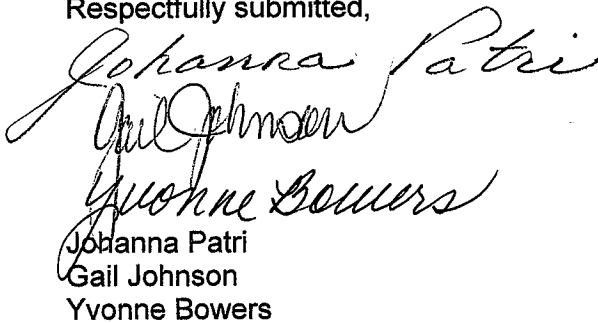 Respectfully submitted,
Johanna Patri
Gail Johnson
Yvonne Bowers
Johanna Patri
Gail Johnson
Yvonne Bowers